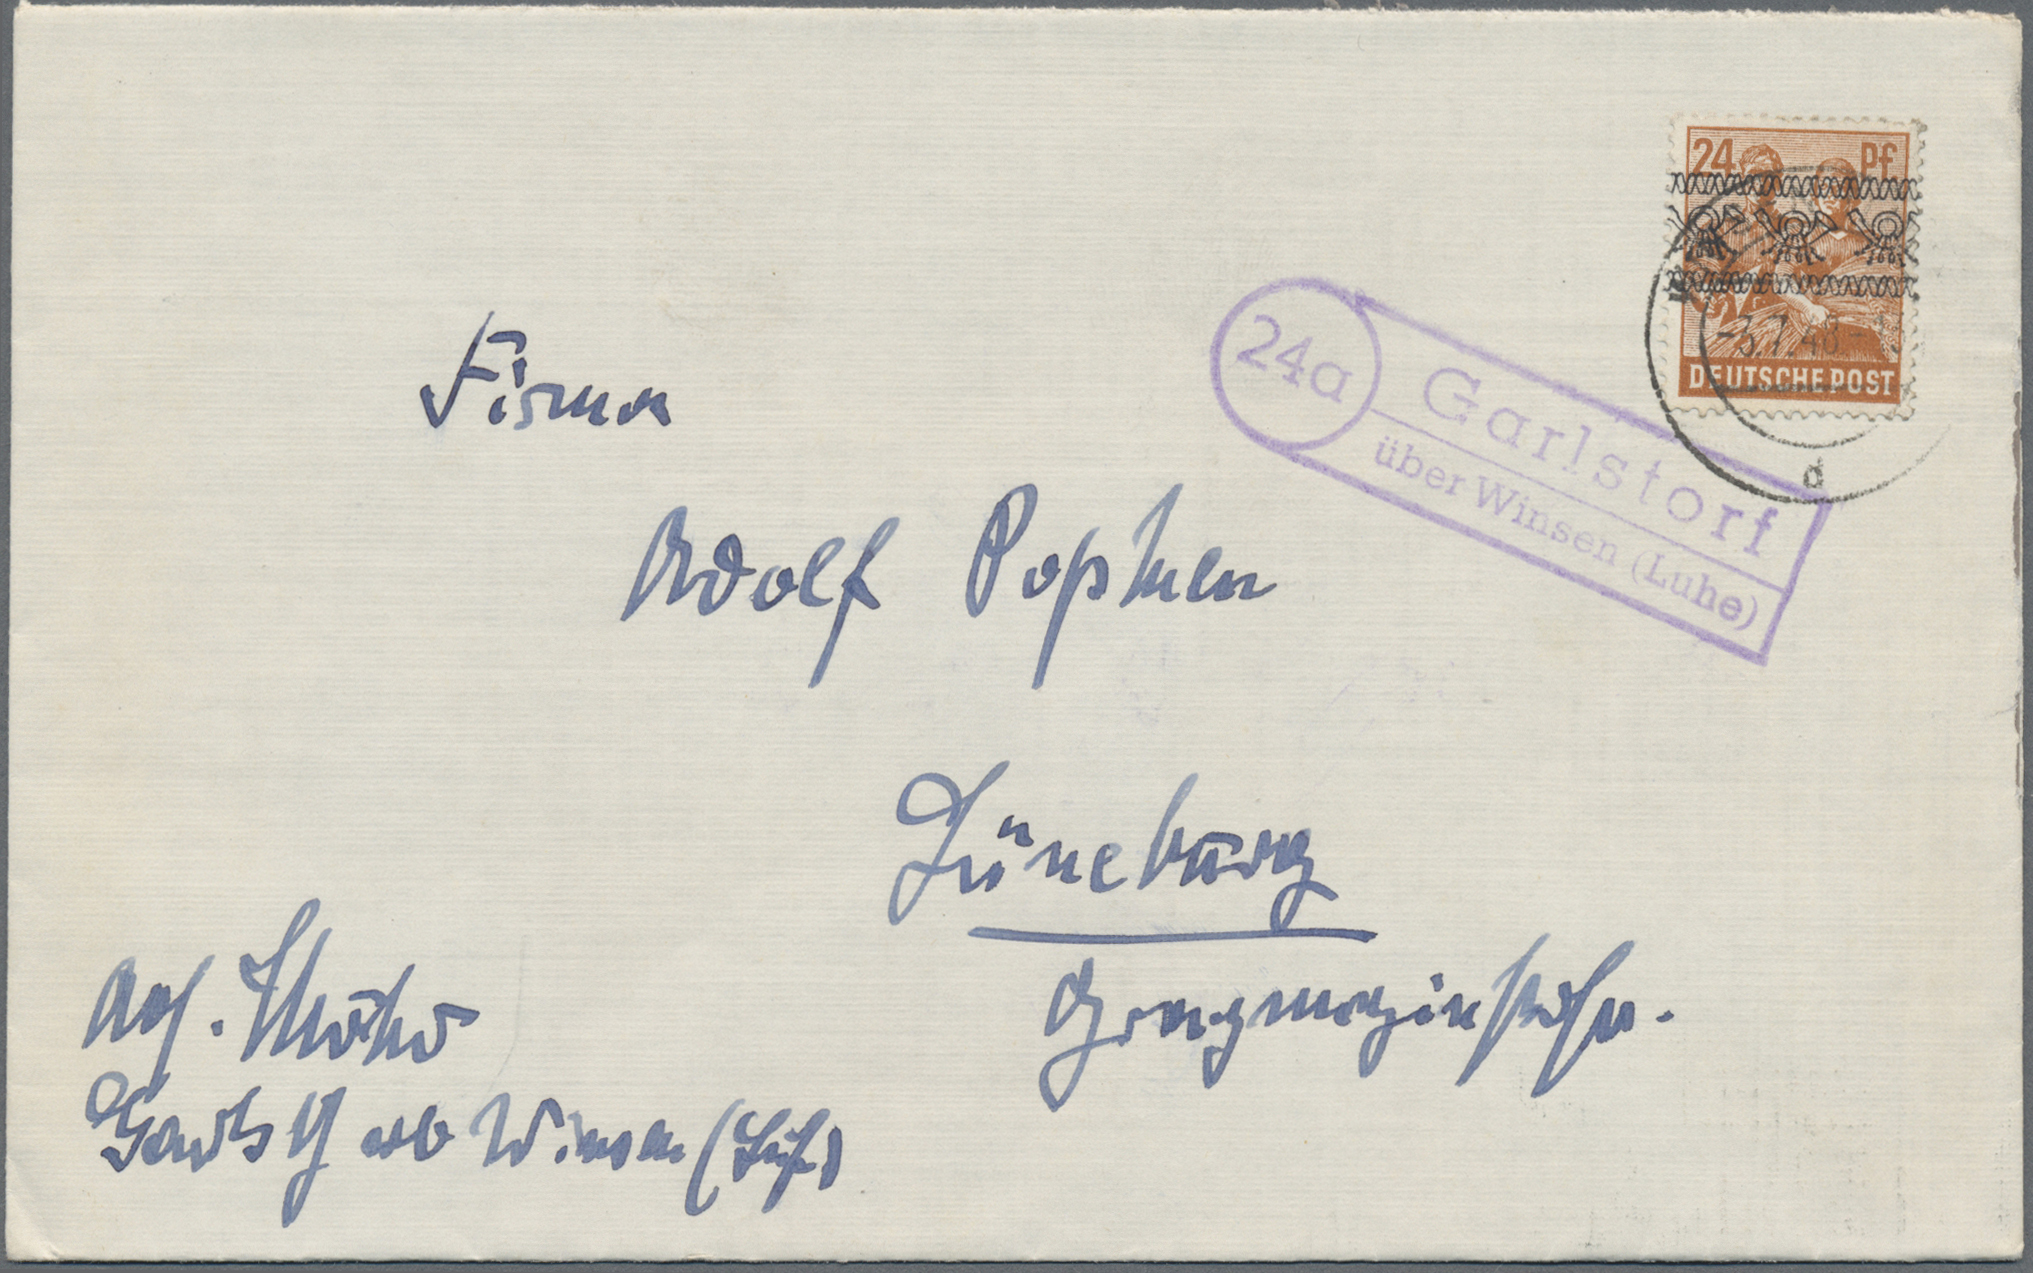 24 Pf
-3.7.48.-
DEUTSCHE POST
d
24a
Garlstorf
über Winsen (Luhe)
Firma
Adolf
Lüneburg
Abs.
Garlstf üb Winsen (Luhe)